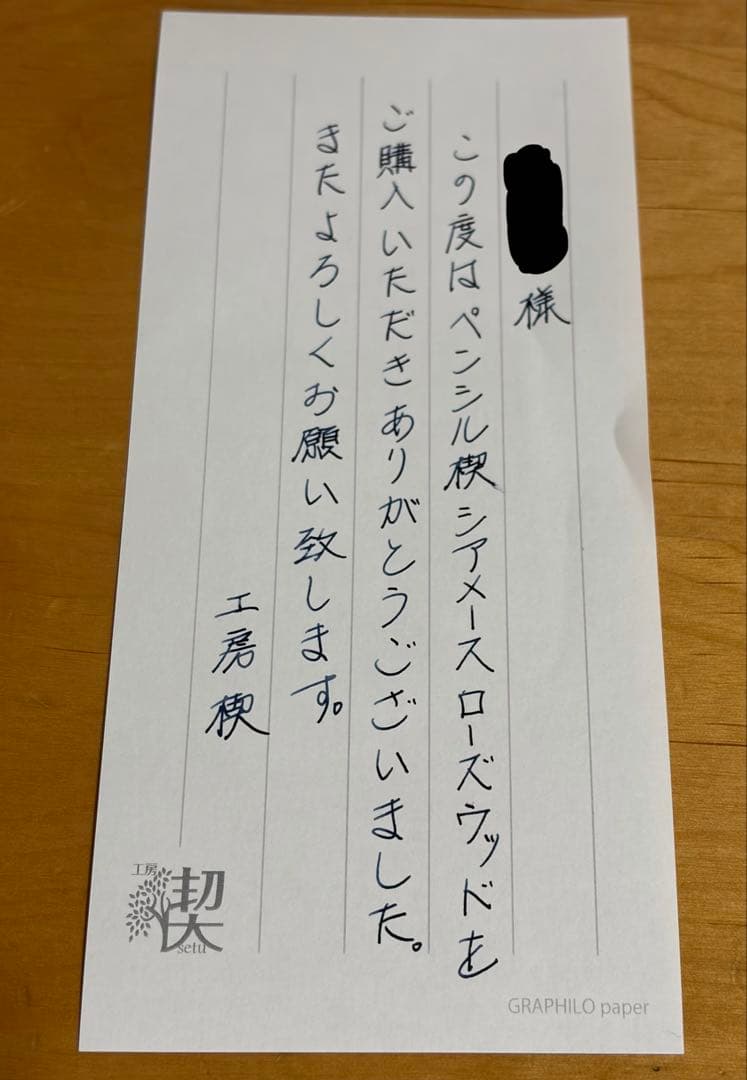 様
この度はペンシル楔シアメースローズウッドを
ご購入いただきありがとうございました。
またよろしくお願い致します。
工房楔
工房
楔
setu
GRAPHILO paper